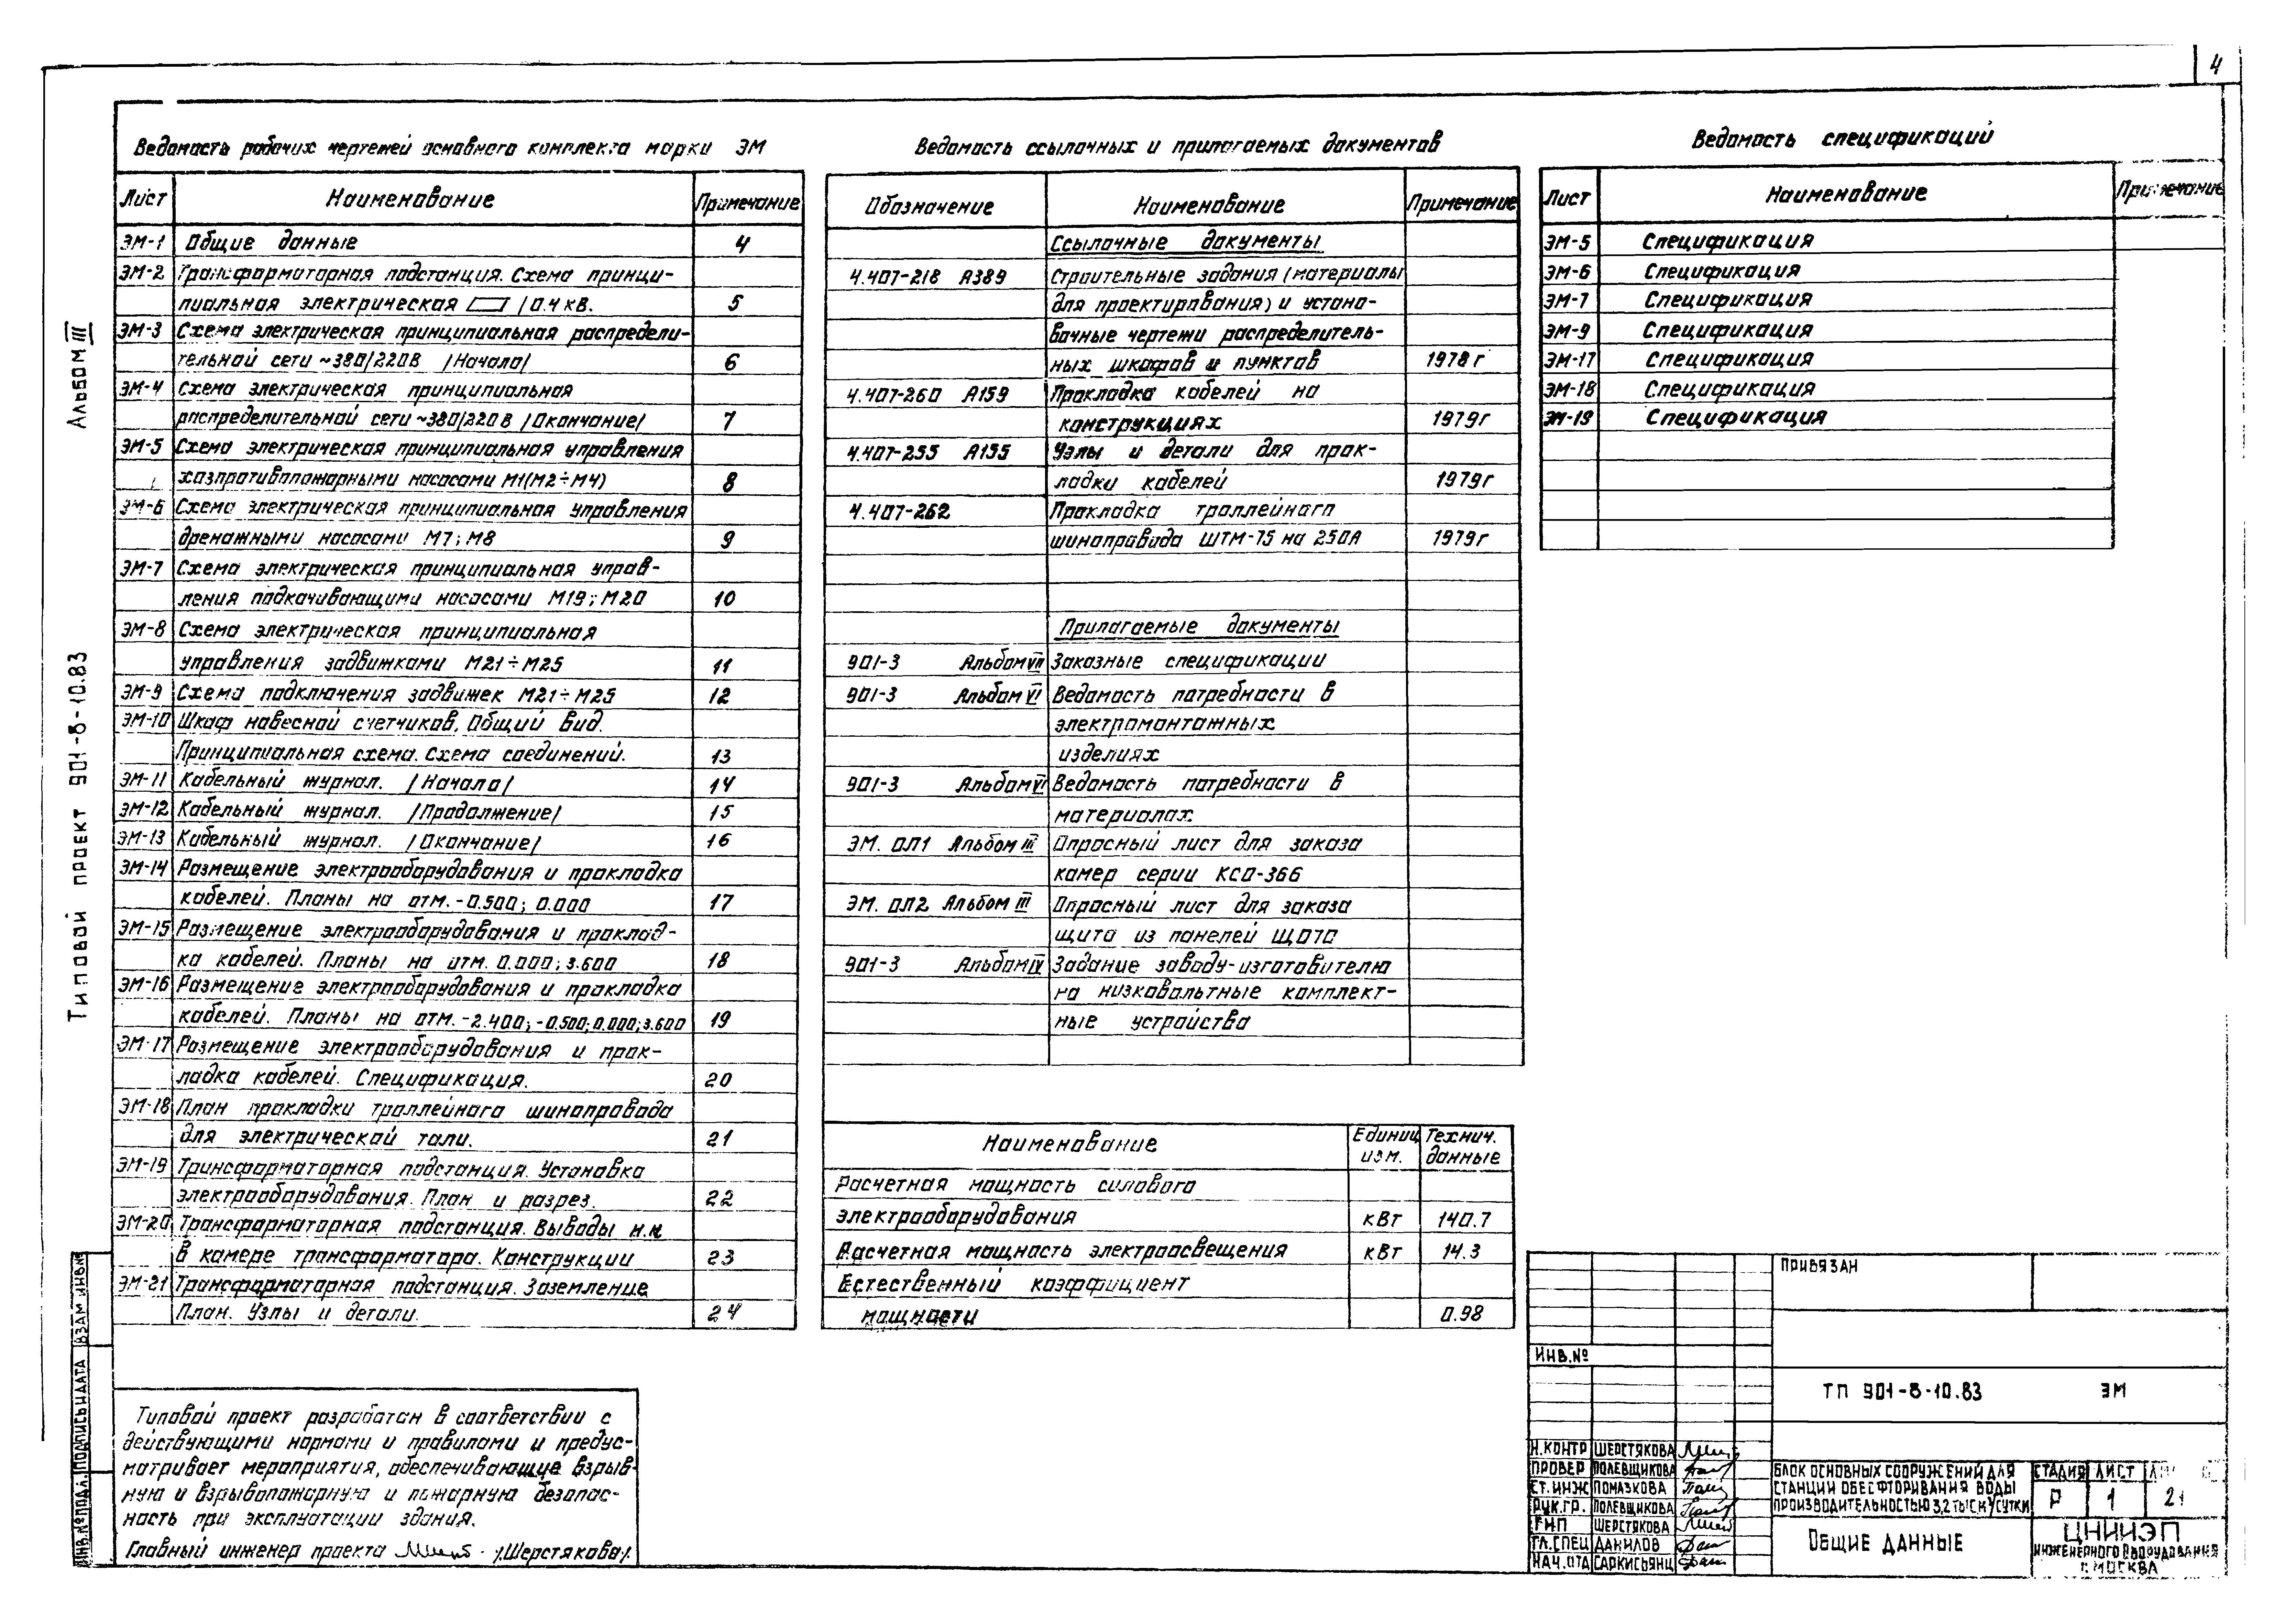 4
Альбом III
Типовой проект 901-8-10.83
Ведомость рабочих чертежей основного комплекта марки ЭМ
Лист Наименование Примечание
ЭМ-1 Общие данные 4
ЭМ-2 Трансформаторная подстанция. Схема принци-
пиальная электрическая / 0.4 кВ. 5
ЭМ-3 Схема электрическая принципиальная распредели-
тельной сети ~380/220В /Начало/ 6
ЭМ-4 Схема электрическая принципиальная
распределительной сети ~380/220В /Окончание/ 7
ЭМ-5 Схема электрическая принципиальная управления
хозпротивопожарными насосами М1(М2÷М4) 8
ЭМ-6 Схема электрическая принципиальная управления
дренажными насосами М7; М8 9
ЭМ-7 Схема электрическая принципиальная управ-
ления подкачивающими насосами М19; М20 10
ЭМ-8 Схема электрическая принципиальная
управления задвижками М21÷М25 11
ЭМ-9 Схема подключения задвижек М21÷М25 12
ЭМ-10 Шкаф навесной счетчиков. Общий вид.
Принципиальная схема. Схема соединений. 13
ЭМ-11 Кабельный журнал. /Начало/ 14
ЭМ-12 Кабельный журнал. /Продолжение/ 15
ЭМ-13 Кабельный журнал. /Окончание/ 16
ЭМ-14 Размещение электрооборудования и прокладка
кабелей. Планы на отм. -0.500; 0.000 17
ЭМ-15 Размещение электрооборудования и проклад-
ка кабелей. Планы на отм. 0.000; 3.600 18
ЭМ-16 Размещение электрооборудования и прокладка
кабелей. Планы на отм. -2.400; -0.500; 0.000; 3.600 19
ЭМ-17 Размещение электрооборудования и прок-
ладка кабелей. Спецификация. 20
ЭМ-18 План прокладки троллейного шинопровода
для электрической тали. 21
ЭМ-19 Трансформаторная подстанция. Установка
электрооборудования. План и разрез. 22
ЭМ-20 Трансформаторная подстанция. Выводы н.н
в камере трансформатора. Конструкции 23
ЭМ-21 Трансформаторная подстанция. Заземление
План. Узлы и детали. 24
Ведомость ссылочных и прилагаемых документов
Обозначение Наименование Примечание
Ссылочные документы
4.407-218 А389 Строительные задания (материалы
для проектирования) и устано-
вочные чертежи распределитель-
ных шкафов и пунктов 1978г
4.407-260 А159 Прокладка кабелей на
конструкциях 1979г
4.407-255 А155 Узлы и детали для прок-
ладки кабелей 1979г
4.407-262 Прокладка троллейного
шинопровода ШТМ-75 на 250А 1979г
Прилагаемые документы
901-3 Альбом VII Заказные спецификации
901-3 Альбом VI Ведомость потребности в
электромонтажных
изделиях
901-3 Альбом VI Ведомость потребности в
материалах
ЭМ. ОЛ1 Альбом III Опросный лист для заказа
камер серии КСО-366
ЭМ. ОЛ2 Альбом III Опросный лист для заказа
щита из панелей ЩО70
901-3 Альбом IV Задание заводу-изготовителю
на низковольтные комплект-
ные устройства
Наименование Единиц изм. Технич. данные
Расчетная мощность силового
электрооборудования кВт 140.7
Расчетная мощность электроосвещения кВт 14.3
Естественный коэффициент
мощности 0.98
Ведомость спецификаций
Лист Наименование Примечание
ЭМ-5 Спецификация
ЭМ-6 Спецификация
ЭМ-7 Спецификация
ЭМ-9 Спецификация
ЭМ-17 Спецификация
ЭМ-18 Спецификация
ЭМ-19 Спецификация
Типовой проект разработан в соответствии с
действующими нормами и правилами и предус-
матривает мероприятия, обеспечивающие взрыв-
ную и взрывопожарную и пожарную безопас-
ность при эксплуатации здания.
Главный инженер проекта /Шерстякова/.
ИНВ.№ ПОДЛ. ПОДПИСЬ И ДАТА ВЗАМ ИНВ.№
ПРИВЯЗАН
ИНВ.№
ТП 901-8-10.83 ЭМ
Н.КОНТР ШЕРСТЯКОВА
ПРОВЕР ПОЛЕВЩИКОВА
СТ.ИНЖ ПОМАЗКОВА
РУК.ГР. ПОЛЕВЩИКОВА
ГИП ШЕРСТЯКОВА
ГЛ.СПЕЦ ДАНИЛОВ
НАЧ.ОТД САРКИСЬЯНЦ
БЛОК ОСНОВНЫХ СООРУЖЕНИЙ ДЛЯ
СТАНЦИИ ОБЕСФТОРИВАНИЯ ВОДЫ
ПРОИЗВОДИТЕЛЬНОСТЬЮ 3,2 ТЫС.М³/СУТКИ
СТАДИЯ ЛИСТ
Р 1 21
ОБЩИЕ ДАННЫЕ
ЦНИИЭП
ИНЖЕНЕРНОГО ОБОРУДОВАНИЯ
Г. МОСКВА